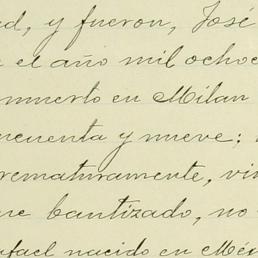 ed, y fueron, José
el año mil ochoc
muerto en Milan
ncuenta y nueve;
rematuramente, vi
ue bautizado, no
afael nacido en Méx